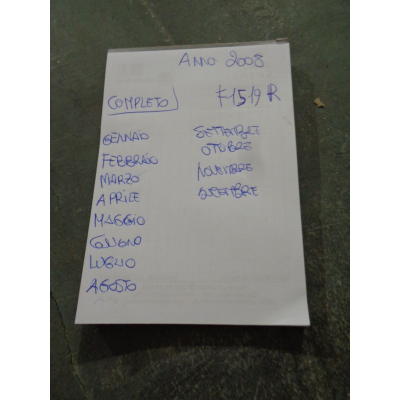 ANNO 2008
COMPLETO F1519R
GENNAIO
FEBBRAIO
MARZO
APRILE
MAGGIO
GIUGNO
LUGLIO
AGOSTO
SETTEMBRE
OTTOBRE
NOVEMBRE
DICEMBRE